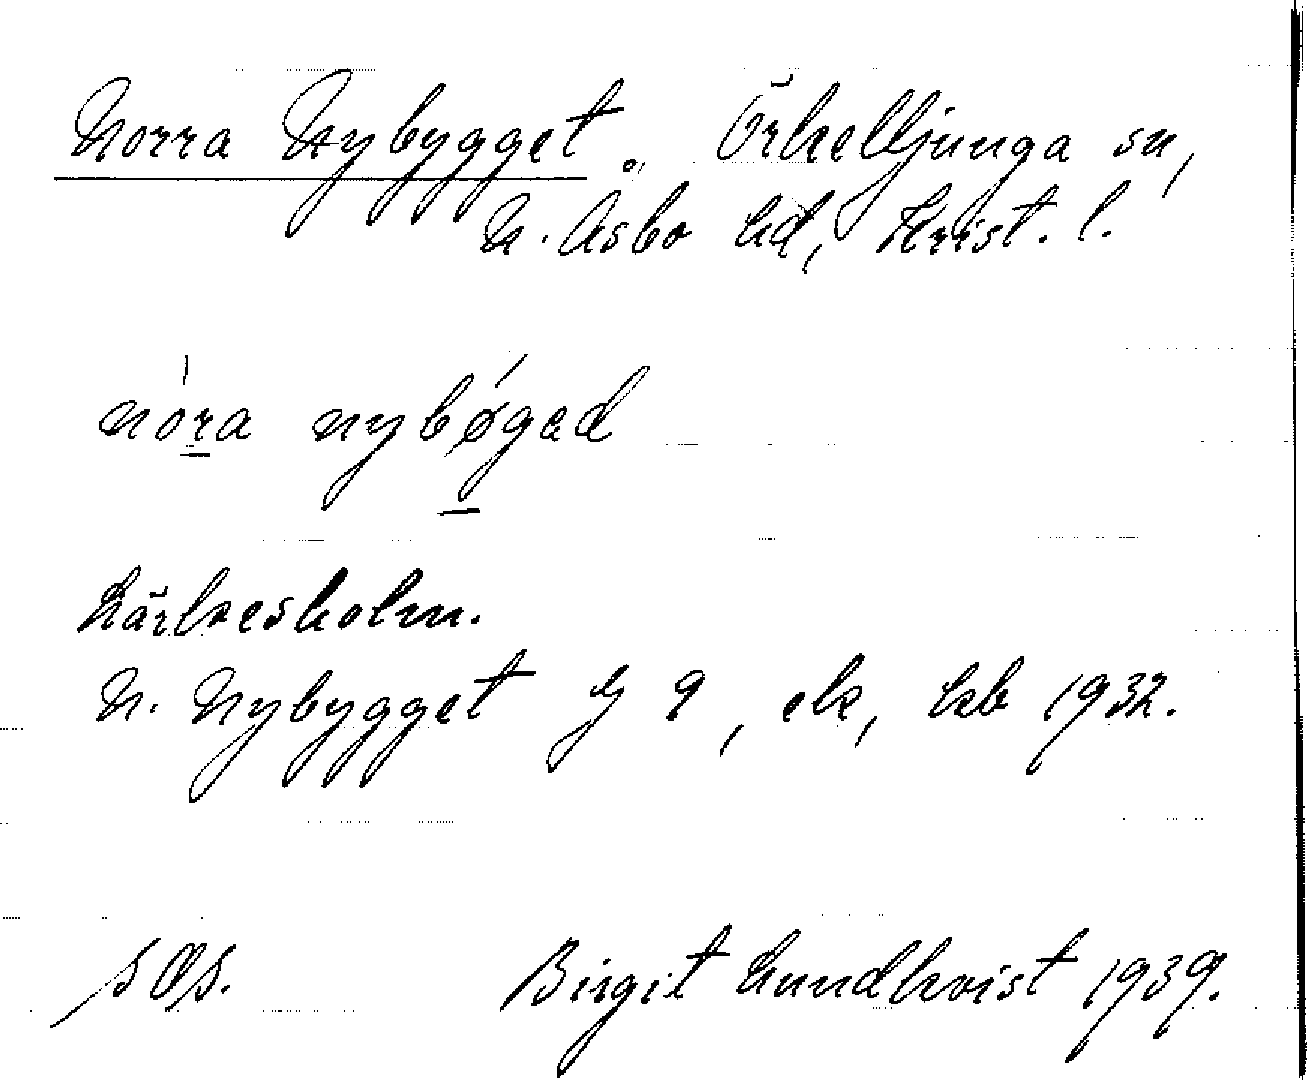 Norra Nybygget. Örkelljunga sn,
N. Åsbo hd, Krist. l.
nóra nybǿgad
Kärbæsholm.
N. Nybygget G 9, ek, kb 1932.
SOS. Birgit Lundkvist 1939.